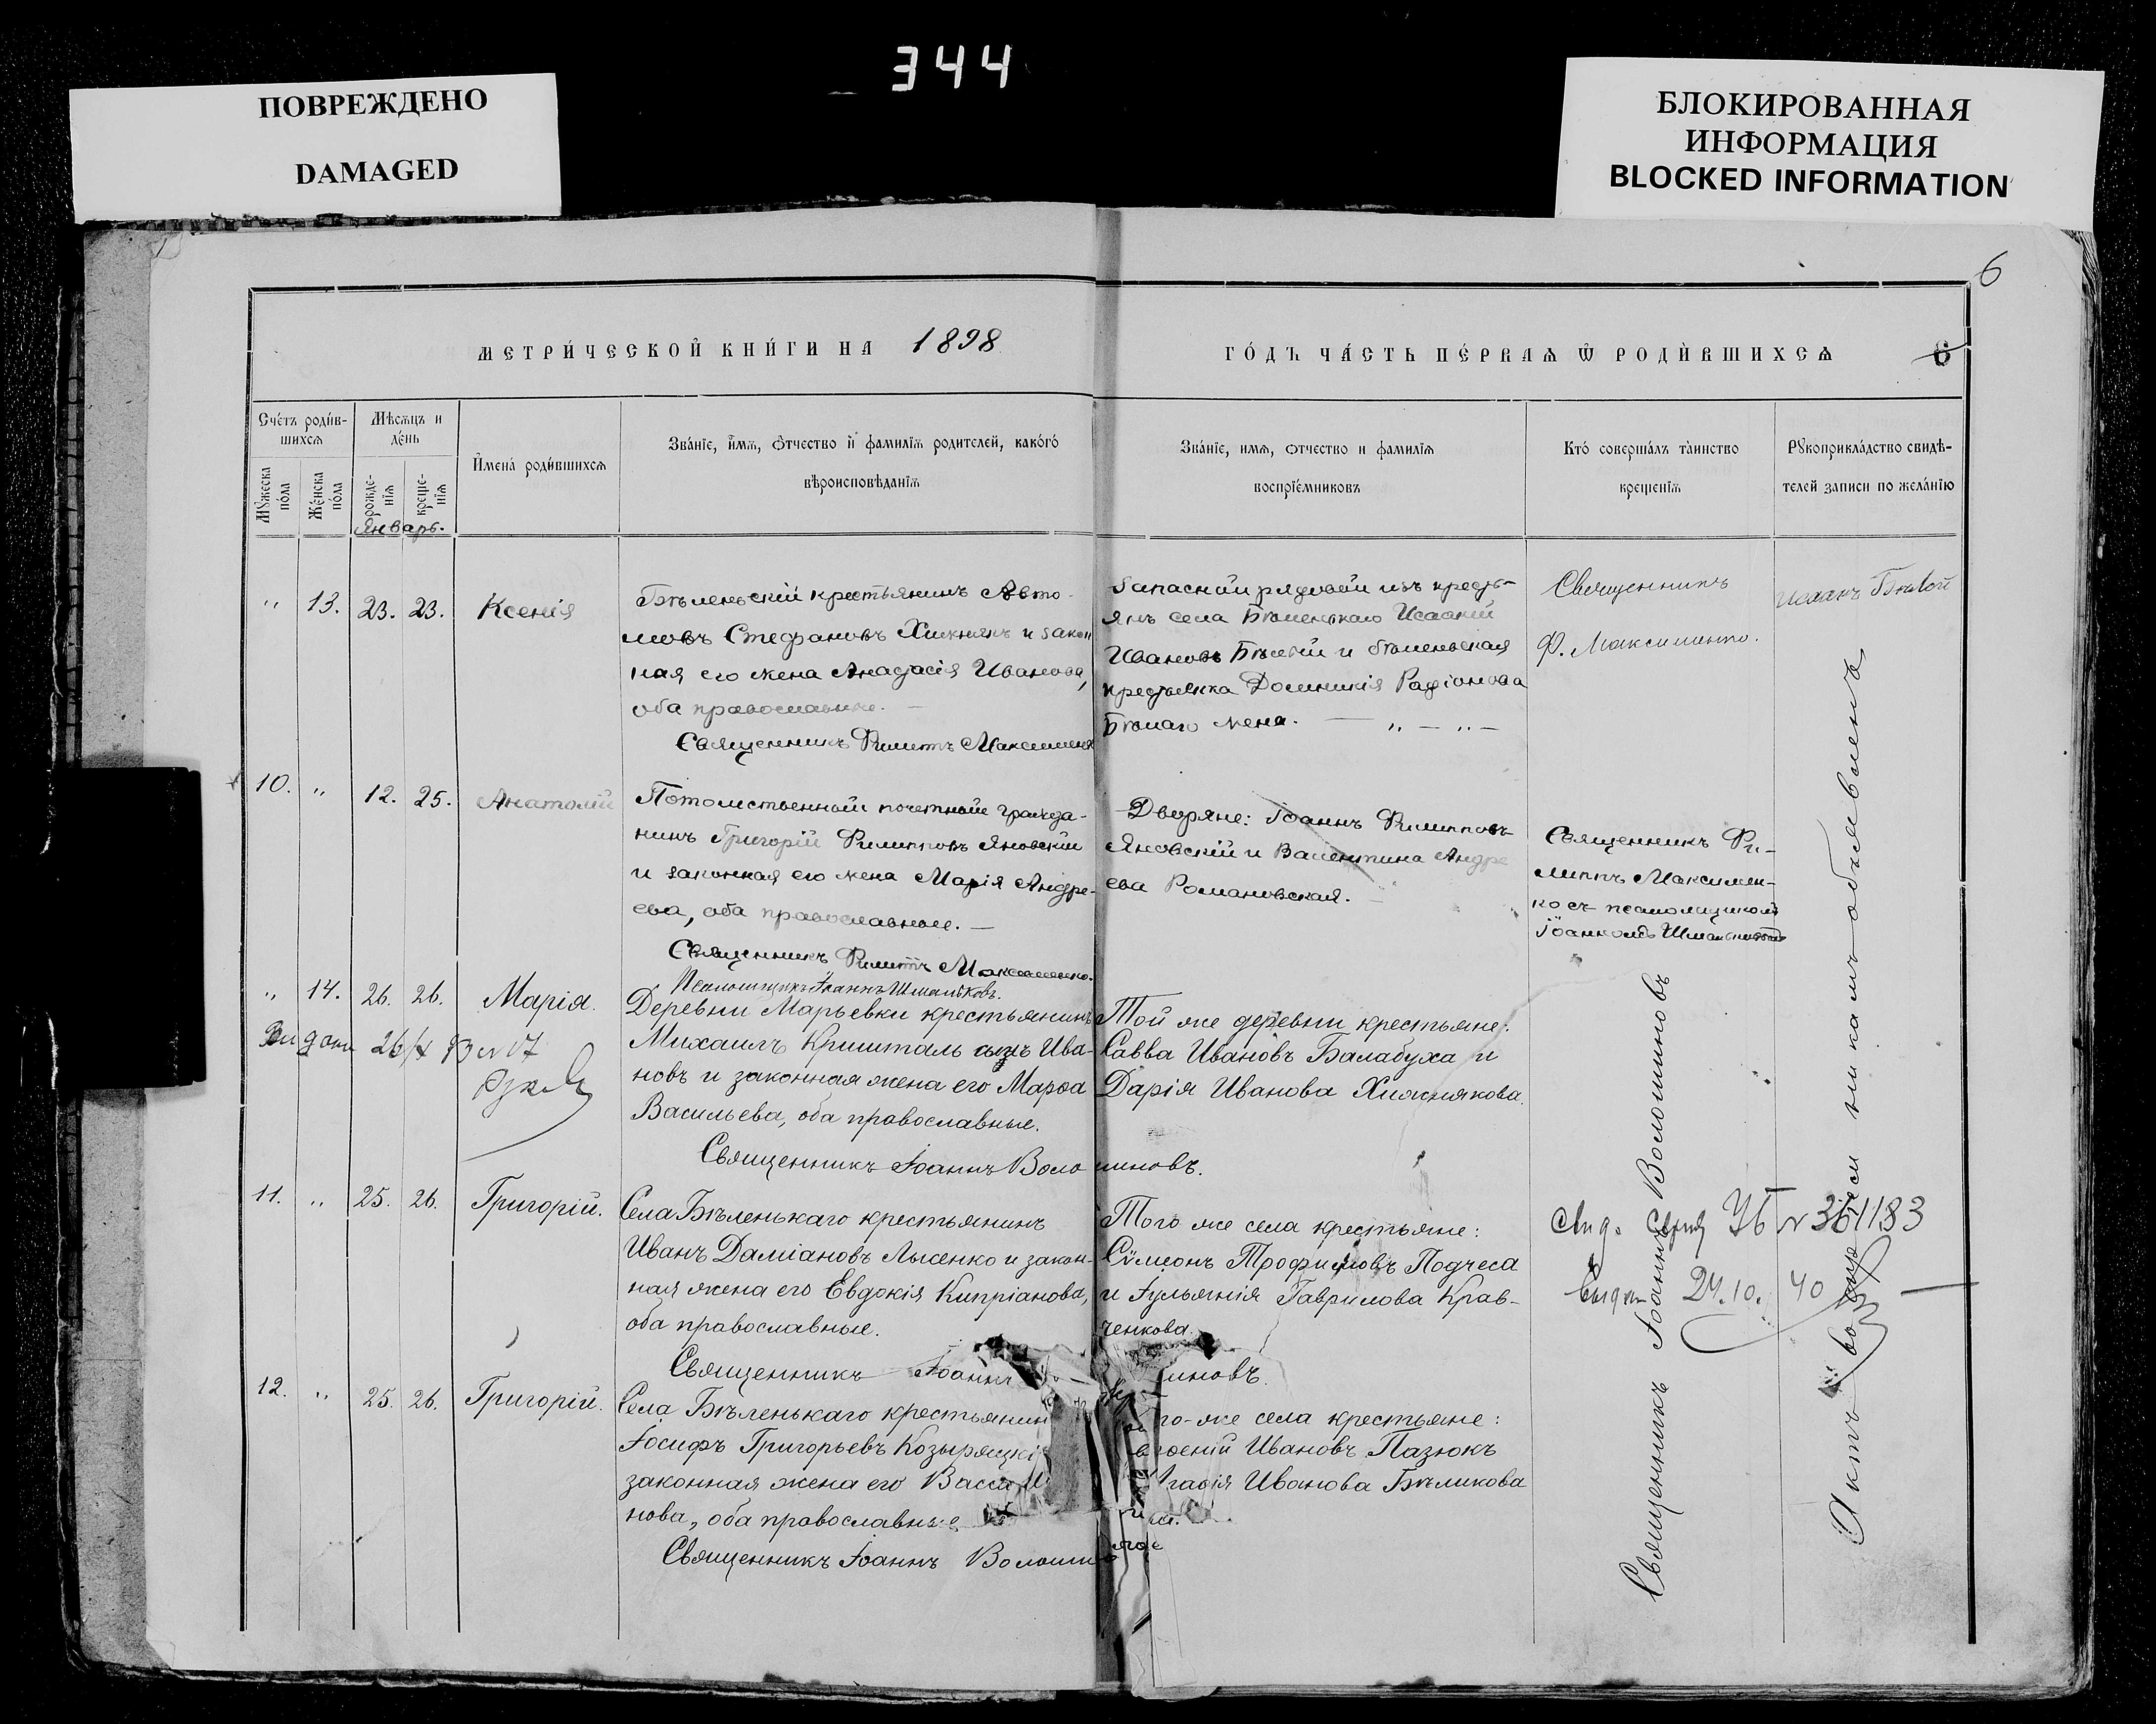 344
ПОВРЕЖДЕНО
DAMAGED
БЛОКИРОВАННАЯ
ИНФОРМАЦИЯ
BLOCKED INFORMATION
6
МЕТРИ́ЧЕСКОЙ КНИ́ГИ НА 1898
ГО́ДЪ ЧА́СТЬ ПЕ́РВАѦ Ѡ҆ РОДИ́ВШИХСѦ 6
Сче́тъ роди́в-
шихсѧ
Мꙋ́жеска
по́ла
Же́нска
по́ла
Мѣ́сѧцъ и
де́нь
рожде-
нїѧ
креще-
нїѧ
Январь.
И҆мена́ роди́вшихсѧ
Зва́нїе, и҆́мѧ, ѻ҆́тчество и҆ фамилїѧ родителей, како́гѡ
вѣроисповѣ́данїѧ
Зва́нїе, имѧ, ѻтчество и фамилїѧ
воспрїе́мниковъ
Кто́ соверша́лъ та́инство
креще́нїѧ
Рꙋкоприкла́дство свидѣ́-
телей записи по жела́нїю
" 13. 23. 23. Ксенія
Бѣленьскій крестьянинъ Авто-
мовъ Стефановъ Хижнякъ и закон
ная его жена Анастасія Иванова,
оба православные. —
Священникъ Филиппъ Максименко
Запасной рядовой изъ кресть-
янъ села Бѣленькаго Исаакій
Ивановъ Бѣлый и бѣленьская
крестьянка Домникія Радіонова
Бѣлаго жена. — „ — „ —
Священникъ
Ф. Максименко.
10. " 12. 25. Анатолій
Потомственный почетный гражда-
нинъ Григорій Филипповъ Яновскій
и законная его жена Марія Андре-
ева, оба православные. —
Священникъ Филиппъ Максименко.
Псаломщикъ Іоаннъ Шмальковъ.
Дворяне: Іоаннъ Филипповъ
Яновскій и Валентина Андре
ева Романовская.
Священникъ Фи-
липпъ Максимен-
ко съ псаломщикомъ
Іоанномъ
" 14. 26. 26. Марія.
Деревни Марьевки крестьянинъ
Михаилъ Кришталь сынъ Ива-
новъ и законная жена его Марѳа
Васильева, оба православные.
Священникъ Іоаннъ Волошиновъ.
Той же деревни крестьяне:
Савва Ивановъ Балабуха и
Дарія Иванова Хижнякова.
11. " 25. 26. Григорій.
Села Бѣленькаго крестьянинъ
Иванъ Даміановъ Лысенко и закон-
ная жена его Евдокія Кипріанова,
оба православные.
Священникъ Іоаннъ иновъ.
Того же села крестьяне:
Сѵмеонъ Трофимовъ Подчеса
и Іульянія Гаврилова Крав-
ченкова.
№ 361183
24.10. 40
12. " 25. 26. Григорій.
Села Бѣленькаго крестьянин
Іосифъ Григорьевъ
законная жена его Васса
нова, оба православные
Священникъ Іоаннъ Волоши
го-же села крестьяне:
Ивановъ Пазюкъ
Иванова Бѣликова
Священникъ Іоаннъ Волошиновъ